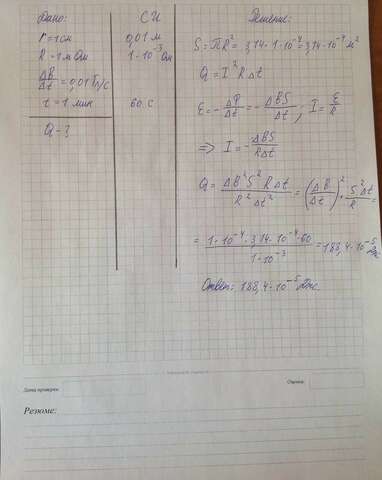 Дано:
r = 1 см
R = 1 мОм
ΔB/Δt = 0,01 Тл/с
t = 1 мин
Q - ?
СИ
0,01 м
1·10⁻³ Ом
60 с
Решение:
S = πR² = 3,14·1·10⁻⁴ = 3,14·10⁻⁴ м²
Q = I²RΔt
ε = -ΔФ/Δt = -ΔBS/Δt ; I = ε/R
=> I = -ΔBS/RΔt
Q = ΔB²S²RΔt/R²Δt² = (ΔB/Δt)² · S²Δt/R =
= 1·10⁻⁴·3,14·10⁻⁴·60/1·10⁻³ = 188,4·10⁻⁵ Дж
Ответ: 188,4·10⁻⁵ Дж.
Дата проверки:
Оценка:
Резюме: